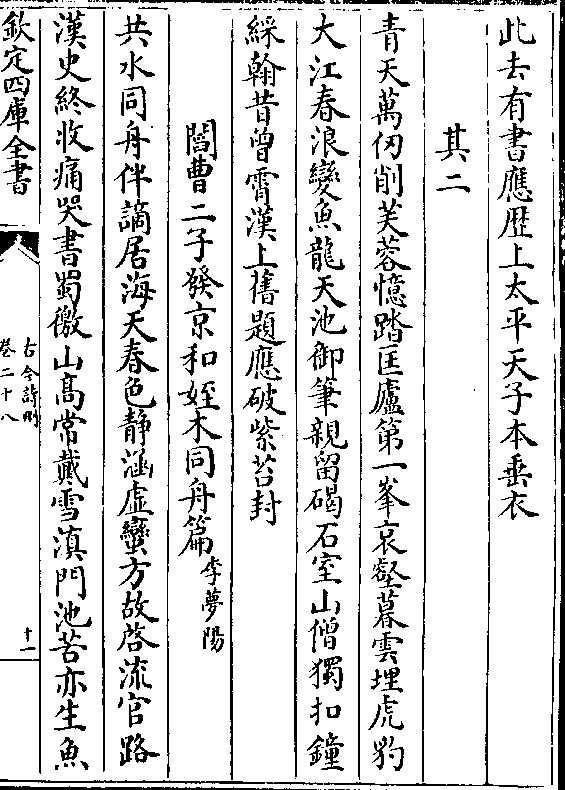 此去有書應歴上太平天子本垂衣
其二
青天萬仞削芙蓉憶踏匡廬第一峯哀壑暮雲埋虎豹
大江春浪變魚龍天池御筆親留碣石室山僧獨扣鐘
綵翰昔曾霄漢上舊題應破紫苔封
閻曹二子發京和姪木同舟篇李夢陽
共水同舟伴謫居海天春色靜涵虚蠻方故啓流官路
漢史終收痛哭書蜀徼山髙常戴雪滇門池苦亦生魚
欽定四庫全書
古今詩刪
卷二十八
十一